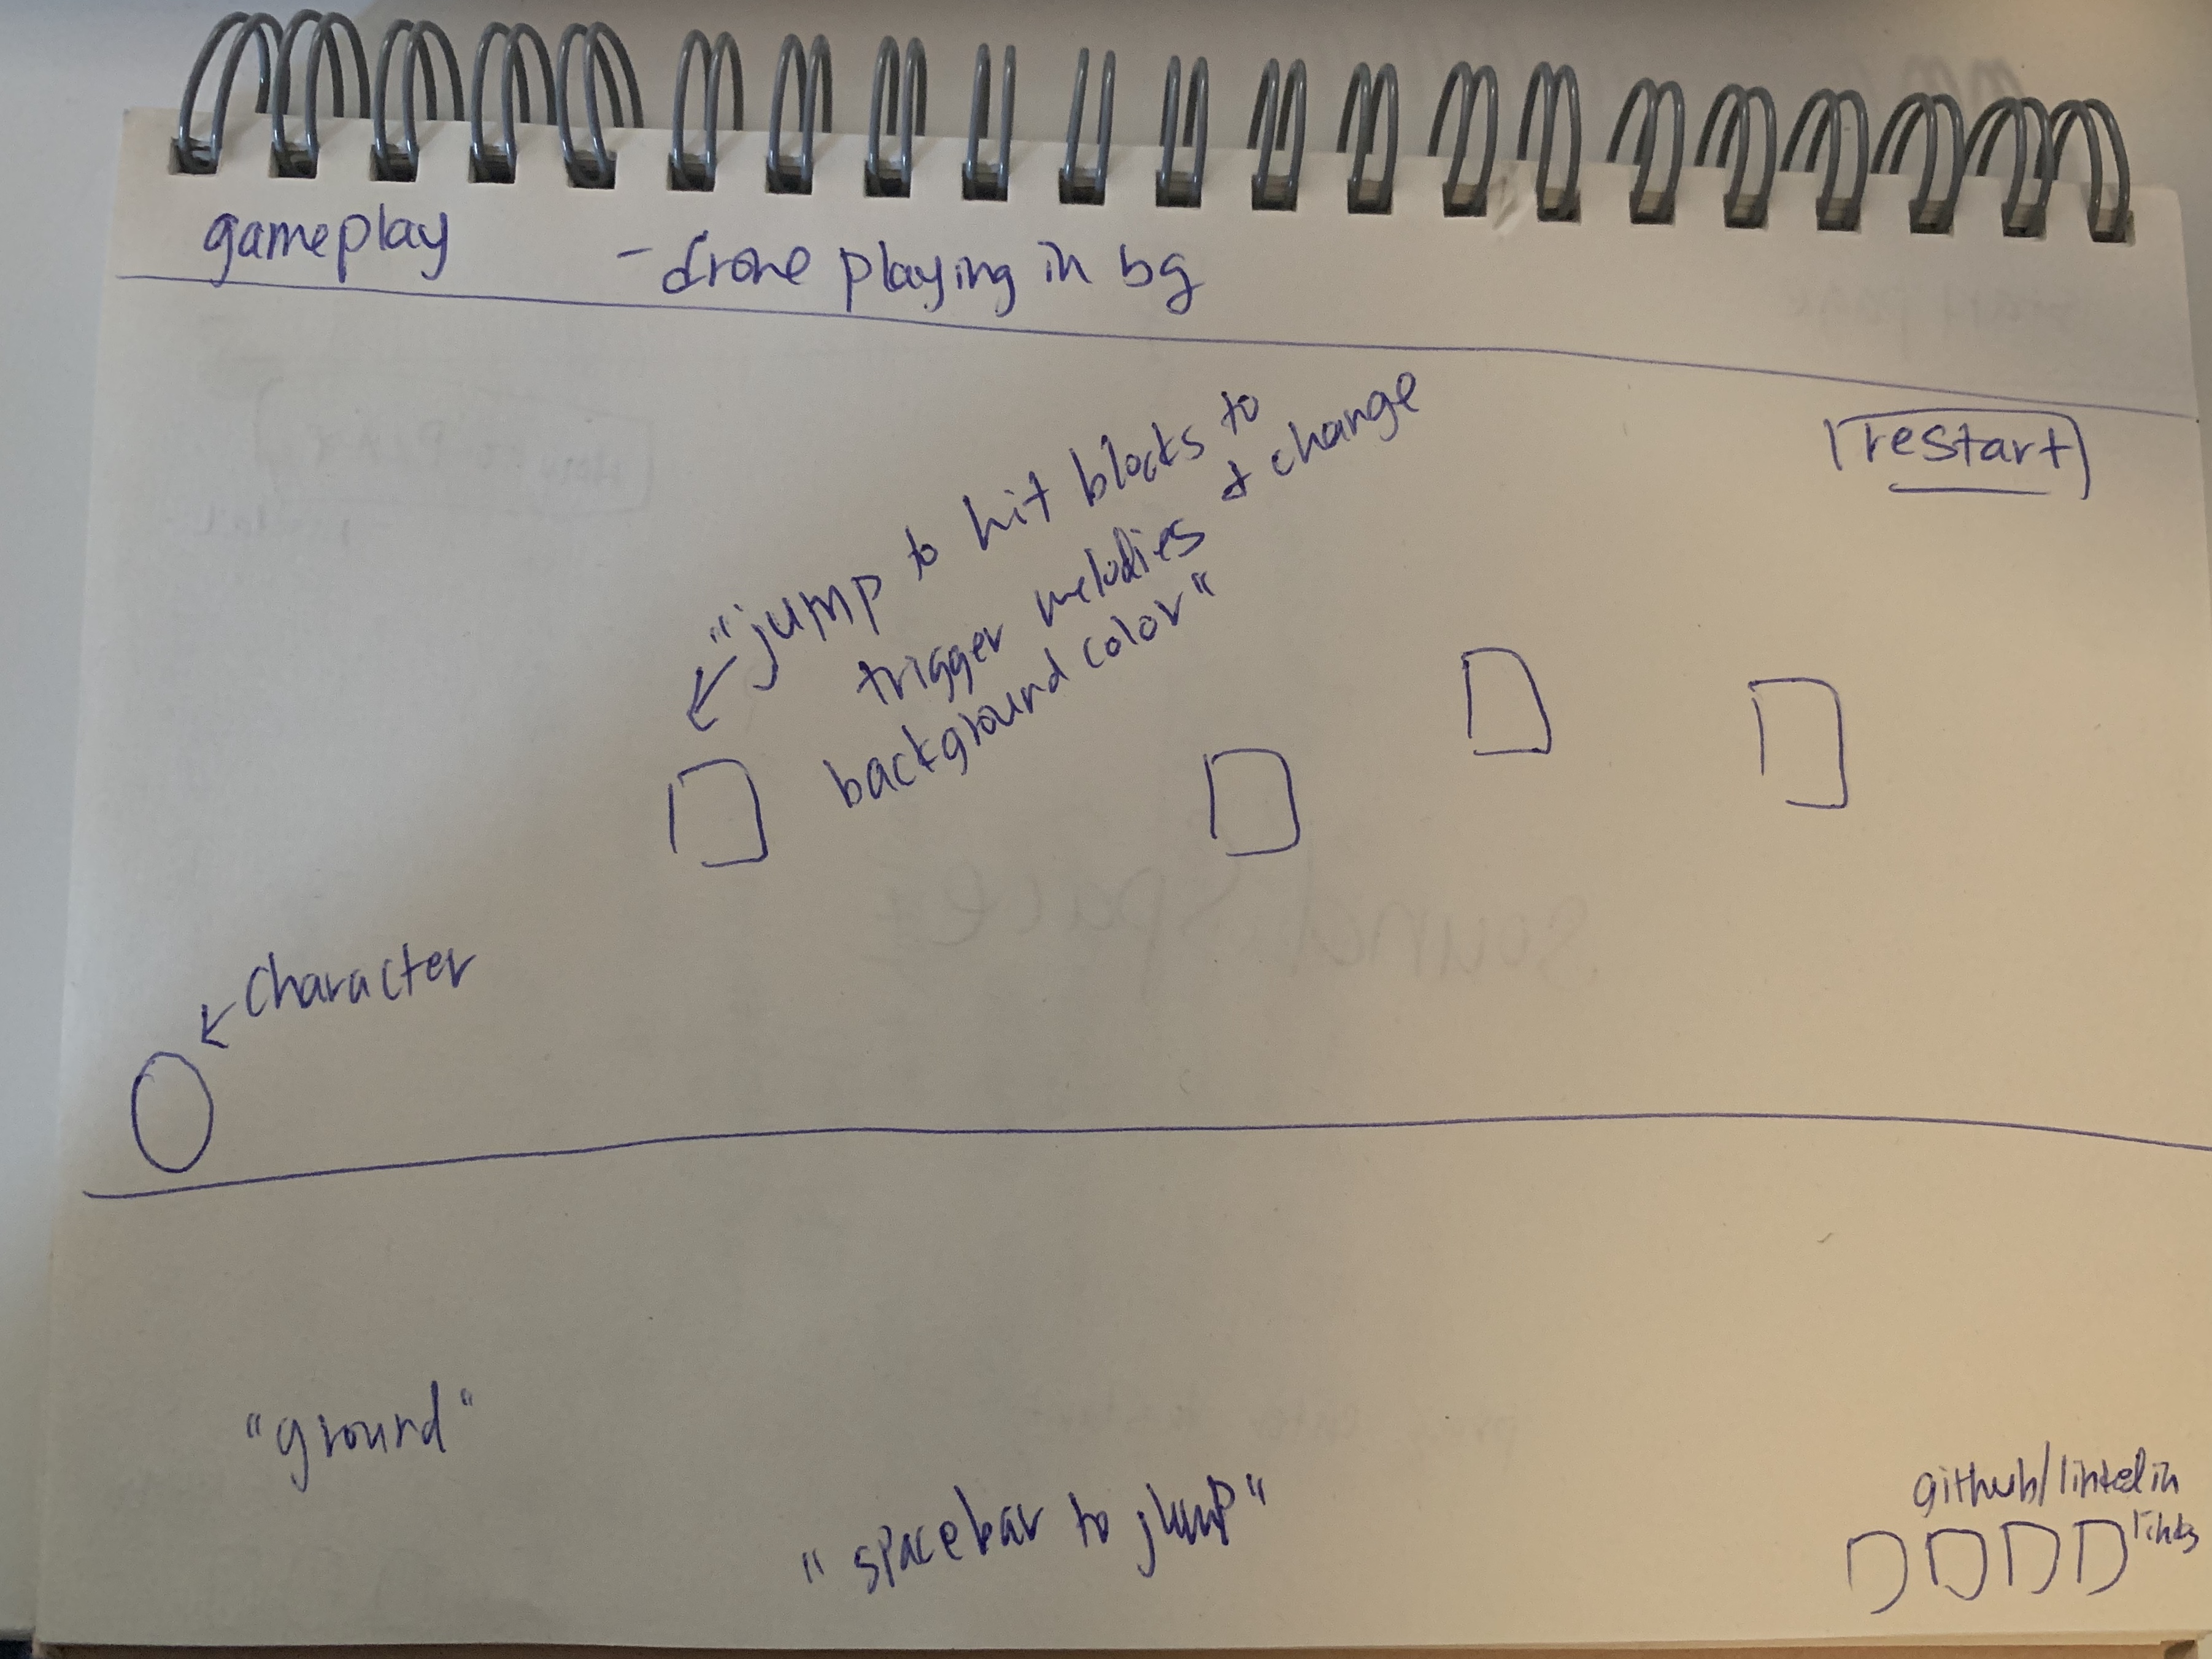 gameplay
- drone playing in bg
restart
"jump to hit blocks to
trigger melodies & change
background color"
character
"ground"
"spacebar to jump"
github/linkedin
links